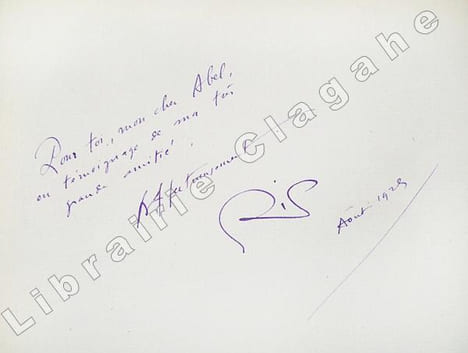 Pour toi, mon cher Abel,
en témoignage de ma très
grande amitié.
Affectueusement
Août 1928
Librairie Clagahe